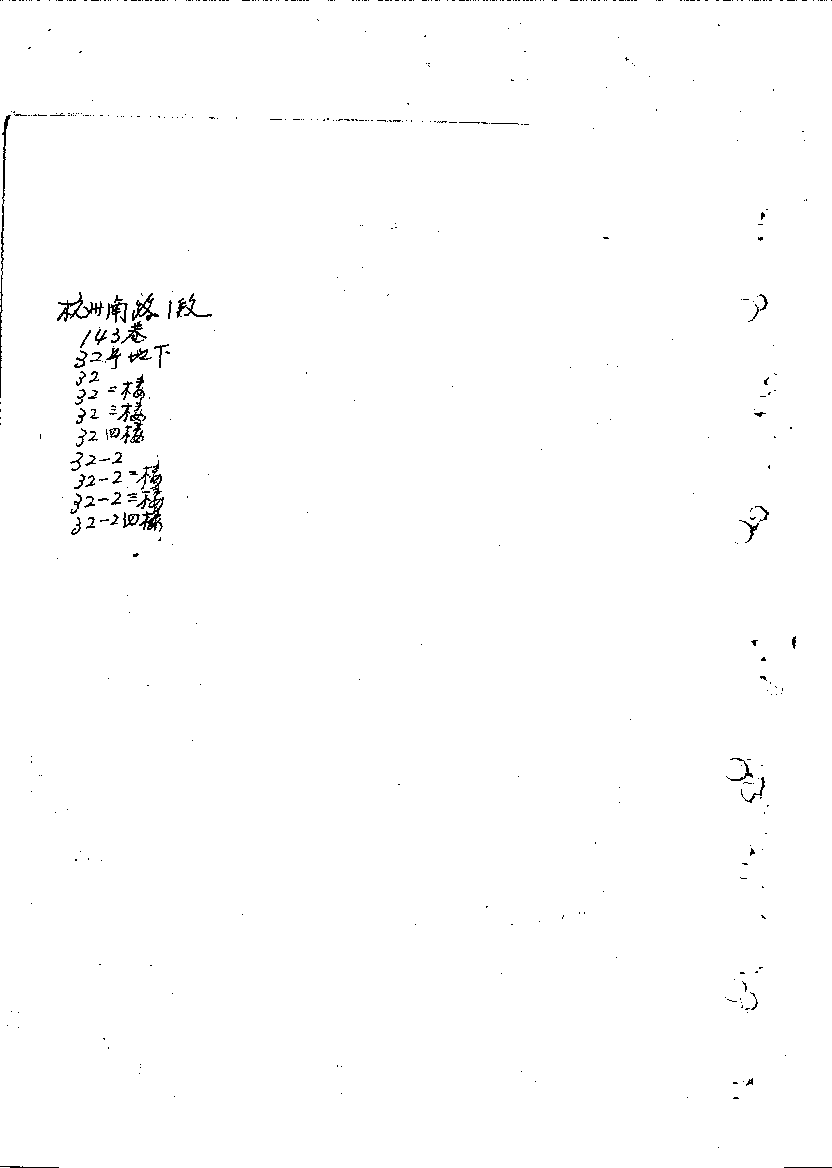 杭州南路1段
143巷
32号地下
32
32二楼
32三楼
32四楼
32-2
32-2二楼
32-2三楼
32-2四楼